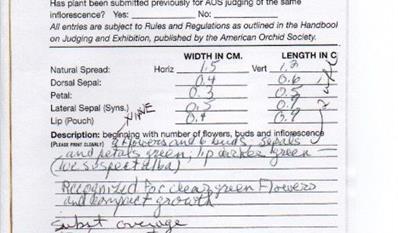 Has plant been submitted previously for AOS judging of the same
inflorescence? Yes: No:
All entries are subject to Rules and Regulations as outlined in the Handbook
on Judging and Exhibition, published by the American Orchid Society.
WIDTH IN CM. LENGTH IN C
Natural Spread: Horiz 1.5 Vert 1.3
Dorsal Sepal: 0.4 0.6
Petal: 0.3 0.5
Lateral Sepal (Syns.) 0.5 0.7
Lip (Pouch) 0.4 0.9
NINE
Description: beginning with number of flowers, buds and inflorescence
(PLEASE PRINT CLEARLY) 9 flowers and 6 buds, sepals
and petals green; lip darker green
(we suspect alba)
Recognized for clear green flowers
and compact growth